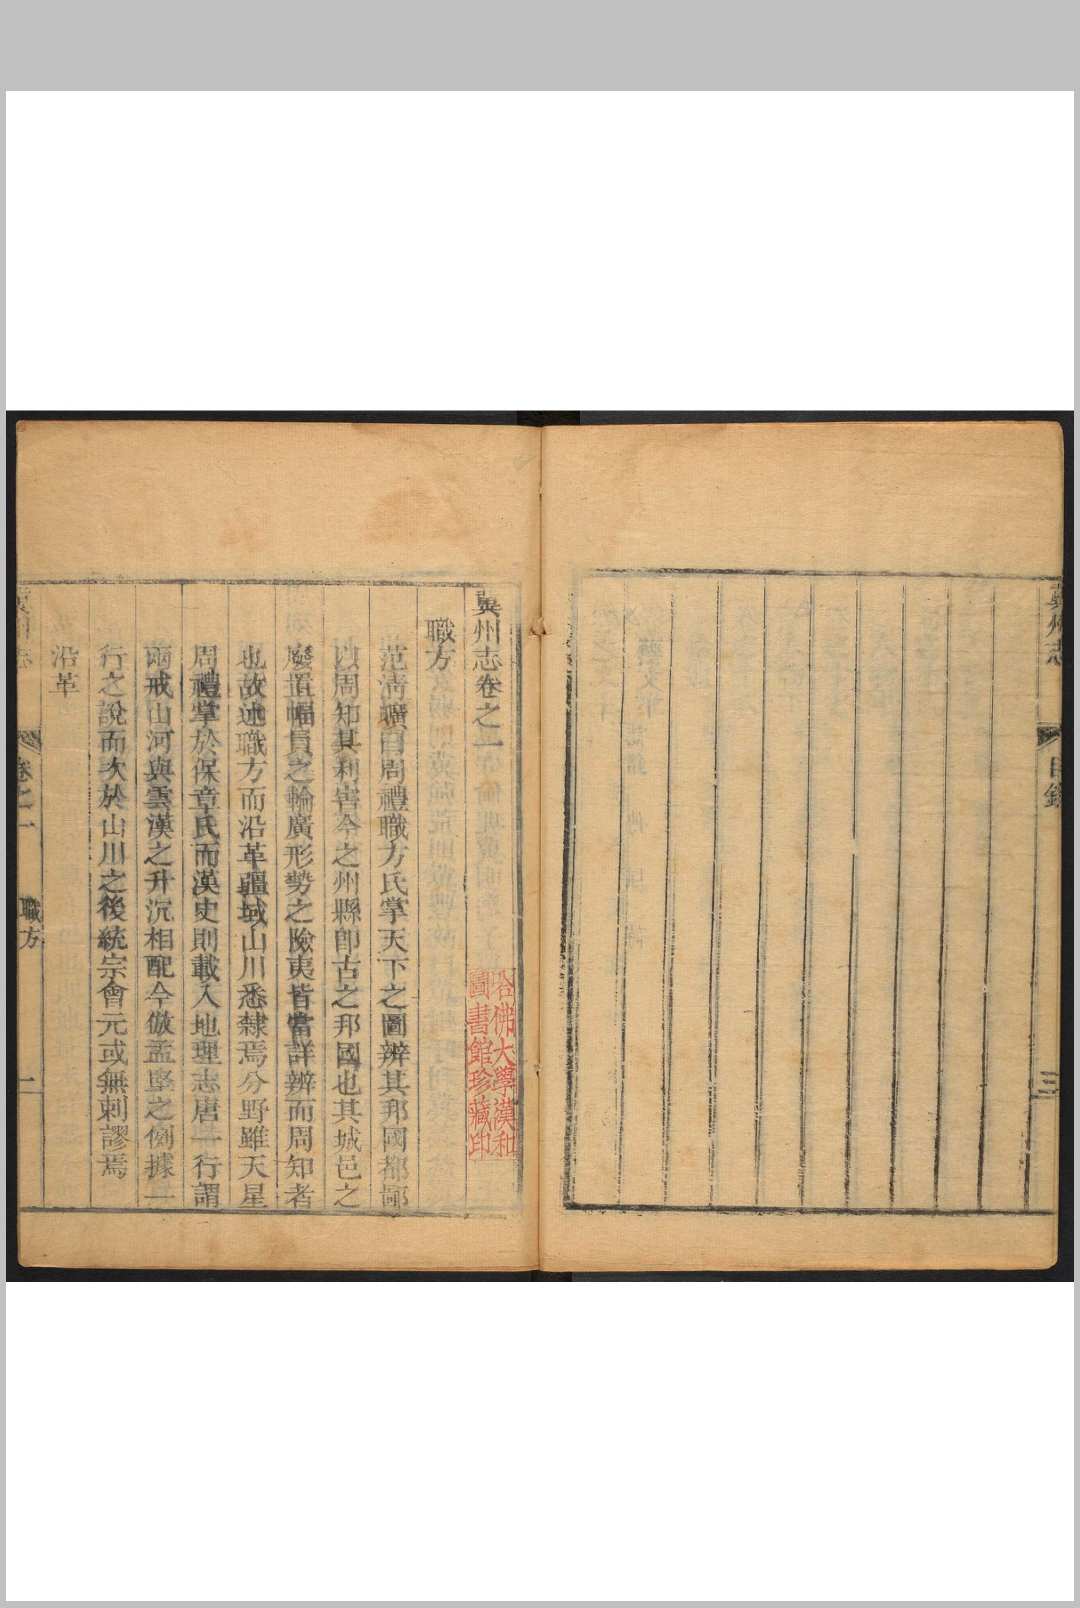 冀州志
目錄
三
冀州志卷之一
職方
范淸曠曰周禮職方氏掌天下之圖辨其邦國都鄙
以周知其利害今之州縣卽古之邦國也其城邑之
廢置幅員之輪廣形勢之險夷皆當詳辨而周知者
也故述職方而沿革疆域山川悉隸焉分野雖天星
周禮掌於保章氏而漢史則載入地理志唐一行謂
兩戒山河與雲漢之升沉相配今倣孟堅之例據一
行之說而次於山川之後統宗會元或無剌謬焉
沿革
哈佛大學漢和
圖書館珍藏印
冀州志
卷之一
職方
一